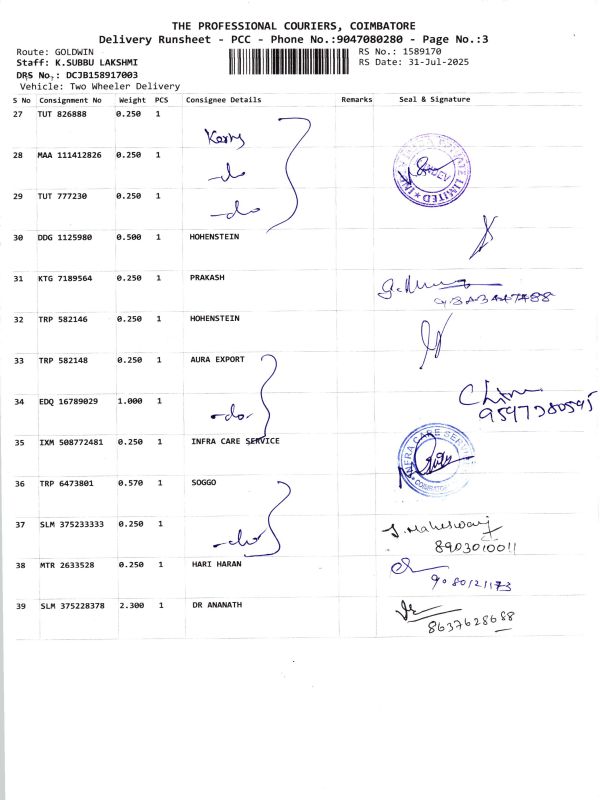 THE PROFESSIONAL COURIERS, COIMBATORE
Delivery Runsheet - PCC - Phone No.:9047080280 - Page No.:3
Route: GOLDWIN
Staff: K.SUBBU LAKSHMI
DRS No.: DCJB158917003
Vehicle: Two Wheeler Delivery
RS No.: 1589170
RS Date: 31-Jul-2025
S No Consignment No Weight PCS Consignee Details Remarks Seal & Signature
27 TUT 826888 0.250 1
28 MAA 111412826 0.250 1 -do
29 TUT 777230 0.250 1 -do
30 DDG 1125980 0.500 1 HOHENSTEIN
31 KTG 7189564 0.250 1 PRAKASH
32 TRP 582146 0.250 1 HOHENSTEIN
33 TRP 582148 0.250 1 AURA EXPORT
34 EDQ 16789029 1.000 1 -do-
35 IXM 508772481 0.250 1 INFRA CARE SERVICE INFRA CARE SERVICE COIMBATORE
36 TRP 6473801 0.570 1 SOGGO
37 SLM 375233333 0.250 1 -do- J. Maheswari
8903010011
38 MTR 2633528 0.250 1 HARI HARAN
9080121173
39 SLM 375228378 2.300 1 DR ANANATH
8637628688